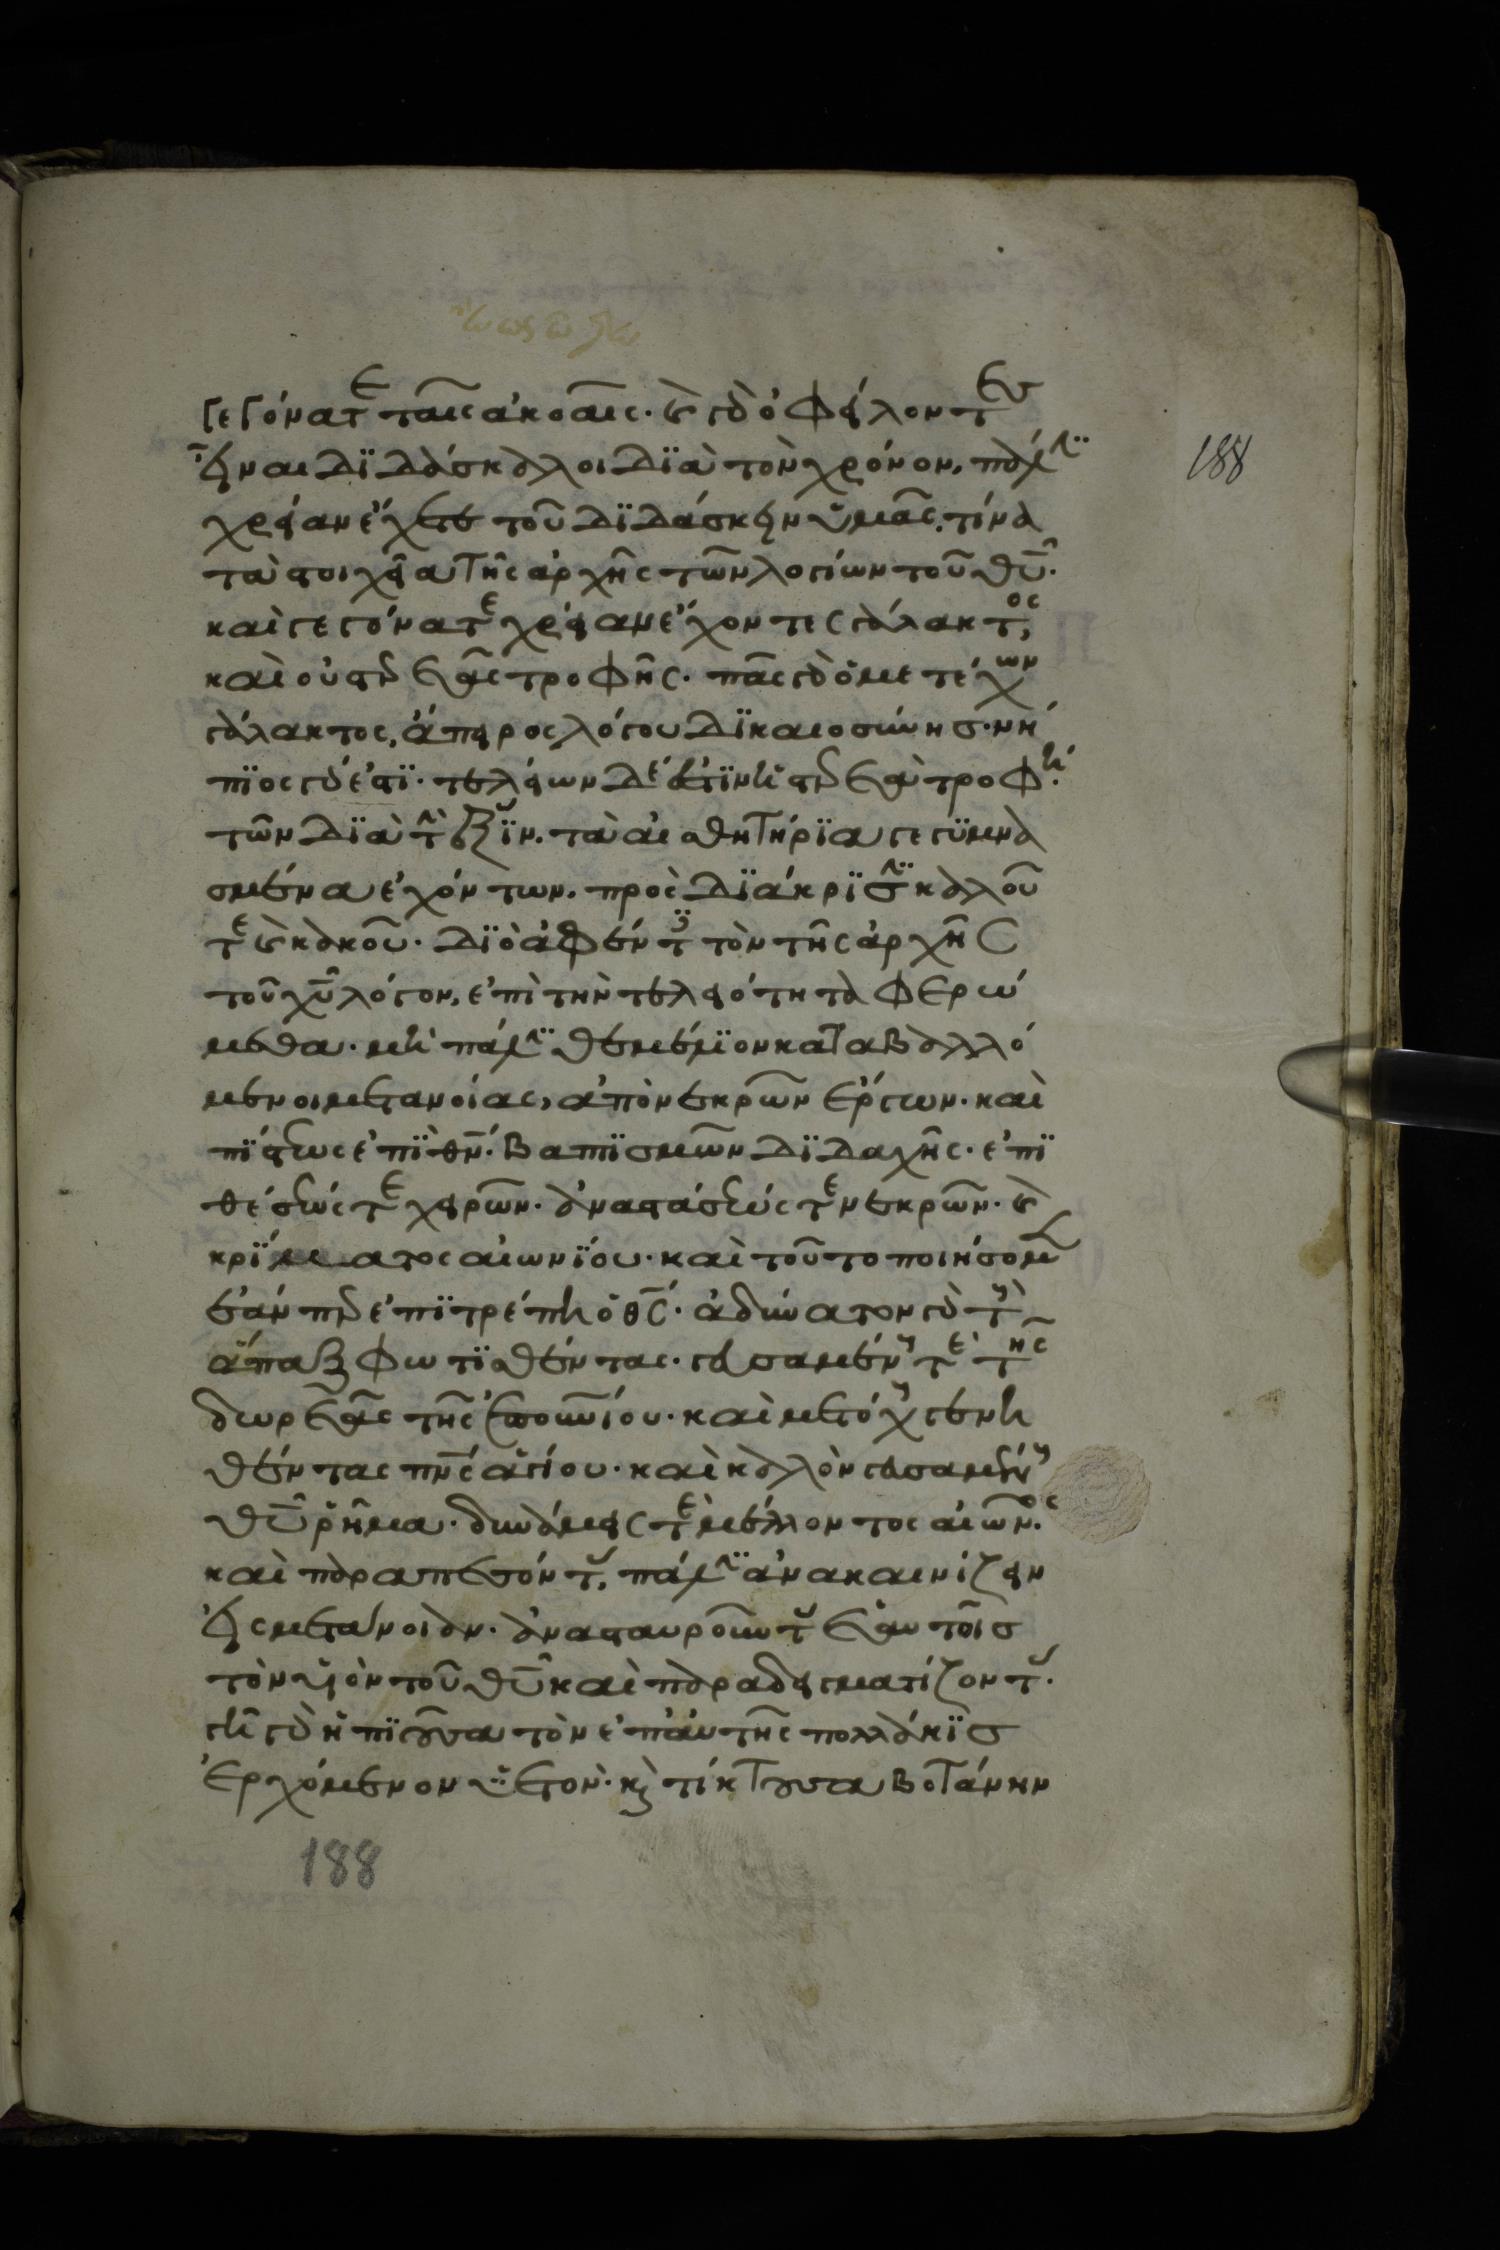 γεγόνατε ταῖς ἀκοαῖς. καὶ γὰρ ὀφείλοντες
εἶναι διδάσκαλοι διὰ τὸν χρόνον, πάλιν
χρείαν ἔχετε τοῦ διδάσκειν ὑμᾶς, τίνα
τὰ στοιχεῖα τῆς ἀρχῆς τῶν λογίων τοῦ θ̅υ̅.
καὶ γεγόνατε χρείαν ἔχοντες γάλακτος,
καὶ οὐ στερεᾶς τροφῆς. πᾶς γὰρ ὁ μετέχων
γάλακτος, ἄπειρος λόγου δικαιοσύνης. νή
πιος γάρ ἐστι. τελείων δέ ἐστιν ἡ στερεὰ τροφή.
τῶν διὰ τὴν ἕξιν. τὰ αἰσθητήρια γεγυμνα
σμένα ἐχόντων. πρὸς διάκρισιν καλοῦ
τε καὶ κακοῦ. διὸ ἀφέντες τὸν τῆς ἀρχῆς
τοῦ χ̅υ̅ λόγον, ἐπὶ τὴν τελειότητα φερώ
μεθα. μὴ πάλιν θεμέλιον καταβαλλό
μενοι μετανοίας, ἀπὸ νεκρῶν ἔργων. καὶ
πίστεως ἐπὶ θ̅ν̅. βαπτισμῶν διδαχῆς. ἐπι
θέσεώς τε χειρῶν. ἀναστάσεώς τε νεκρῶν. καὶ
κρίματος αἰωνίου. καὶ τοῦτο ποιήσομεν
ἐάνπερ ἐπιτρέπῃ ὁ θ̅ς̅. ἀδύνατον γὰρ τοὺς
ἅπαξ φωτισθέντας. γευσαμένους τε τῆς
δωρεᾶς τῆς ἐπουρανίου. καὶ μετόχους γενη
θέντας π̅ν̅ς̅ ἁγίου. καὶ καλὸν γευσαμένους
θ̅υ̅ ῥῆμα. δυνάμεις τε μέλλοντος αἰῶνος.
καὶ παραπεσόντας, πάλιν ἀνακαινίζειν
εἰς μετάνοιαν. ἀνασταυροῦντας ἑαυτοῖς
τὸν υἱὸν τοῦ θ̅υ̅ καὶ παραδειγματίζοντας.
γῆ γὰρ ἡ πιοῦσα τὸν ἐπ' αὐτῆς πολλάκις
ἐρχόμενον ὑετὸν. καὶ τίκτουσα βοτάνην
188
188